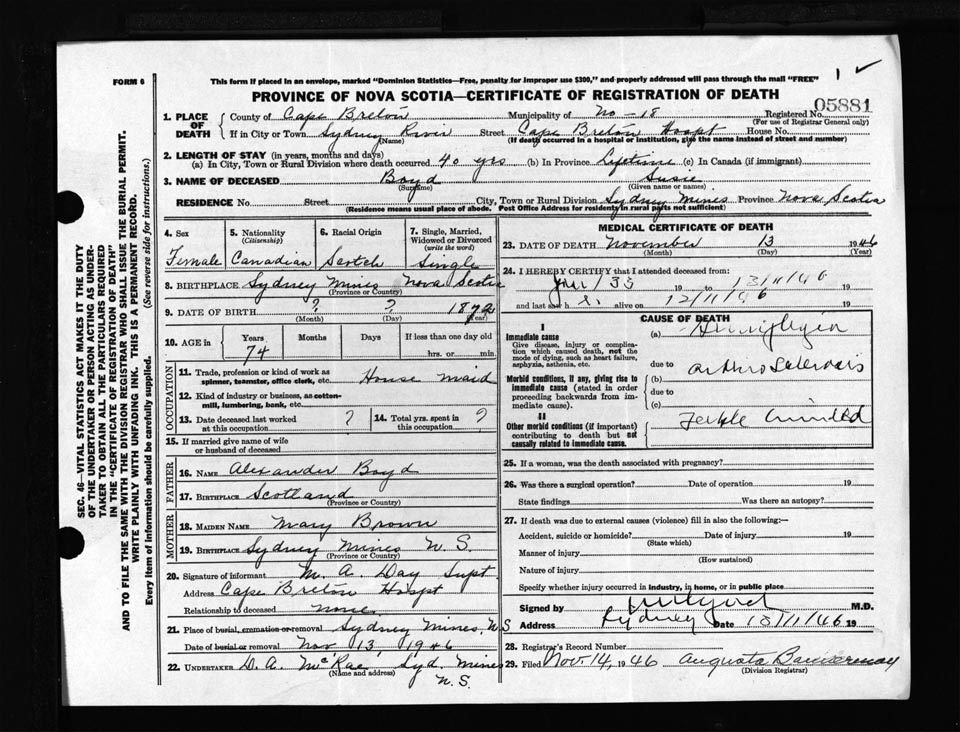 1 ✓
FORM 6
This form if placed in an envelope, marked "Dominion Statistics—Free, penalty for improper use $300," and properly addressed will pass through the mail "FREE"
PROVINCE OF NOVA SCOTIA—CERTIFICATE OF REGISTRATION OF DEATH
05881
1. PLACE OF DEATH
County of Cape Breton Municipality of No-18 Registered No.
(For use of Registrar General only)
If in City or Town Sydney River Street Cape Breton Hospt House No.
(Name) (If death occurred in a hospital or institution, give the name instead of street and number)
2. LENGTH OF STAY (in years, months and days)
(a) In City, Town or Rural Division where death occurred 40 yrs (b) In Province Lifetime (c) In Canada (if immigrant)
3. NAME OF DECEASED Boyd Susie
(Surname) (Given name or names)
RESIDENCE No. Street City, Town or Rural Division Sydney Mines Province Nova Scotia
(Residence means usual place of abode. Post Office Address for residents in rural parts not sufficient)
4. Sex 5. Nationality (Citizenship) 6. Racial Origin 7. Single, Married, Widowed or Divorced (write the word)
Female Canadian Scotch Single
8. BIRTHPLACE Sydney Mines Nova Scotia
(Province or Country)
9. DATE OF BIRTH ? ? 1872
(Month) (Day) (Year)
10. AGE in Years Months Days If less than one day old
74 hrs. or min.
OCCUPATION
11. Trade, profession or kind of work as spinner, teamster, office clerk, etc. House maid
12. Kind of industry or business, as cotton-mill, lumbering, bank, etc.
13. Date deceased last worked at this occupation ? 14. Total yrs. spent in this occupation ?
15. If married give name of wife or husband of deceased
FATHER
16. NAME Alexander Boyd
17. BIRTHPLACE Scotland
(Province or Country)
MOTHER
18. MAIDEN NAME Mary Brown
19. BIRTHPLACE Sydney Mines N.S.
(Province or Country)
20. Signature of informant M. A. Day Supt.
Address Cape Breton Hospt
Relationship to deceased none
21. Place of burial, cremation or removal Sydney Mines, N.S
Date of burial or removal Nov 13, 1946
22. UNDERTAKER D. A. McRae, Syd. Mines
(Name and address) N.S.
MEDICAL CERTIFICATE OF DEATH
23. DATE OF DEATH November 13 1946
(Month) (Day) (Year)
24. I HEREBY CERTIFY that I attended deceased from:
/35 19 to 13/11/46 19
and last saw h alive on 12/11/46 19
CAUSE OF DEATH
I
Immediate cause
Give disease, injury or complication which caused death, not the mode of dying, such as heart failure, asphyxia, asthenia, etc.
(a) Hemiplegia
due to
Morbid conditions, if any, giving rise to immediate cause (stated in order proceeding backwards from immediate cause).
(b)
due to
(c)
II
Other morbid conditions (if important) contributing to death but not causally related to immediate cause.
Feeble minded
25. If a woman, was the death associated with pregnancy?
26. Was there a surgical operation? Date of operation 19
State findings Was there an autopsy?
27. If death was due to external causes (violence) fill in also the following:—
Accident, suicide or homicide? Date of injury 19
(State which)
Manner of injury
(How sustained)
Nature of injury
Specify whether injury occurred in industry, in home, or in public place
Signed by M.D.
Address Sydney Date /11/46 19
28. Registrar's Record Number
29. Filed Nov. 14, 1946 Augusta
(Division Registrar)
SEC. 46—VITAL STATISTICS ACT MAKES IT THE DUTY
OF THE UNDERTAKER OR PERSON ACTING AS UNDER-
TAKER TO OBTAIN ALL THE PARTICULARS REQUIRED
IN THE "CERTIFICATE OF REGISTRATION OF DEATH"
AND TO FILE THE SAME WITH THE DIVISION REGISTRAR WHO SHALL ISSUE THE BURIAL PERMIT.
WRITE PLAINLY WITH UNFADING INK. THIS IS A PERMANENT RECORD.
Every item of information should be carefully supplied. (See reverse side for instructions.)